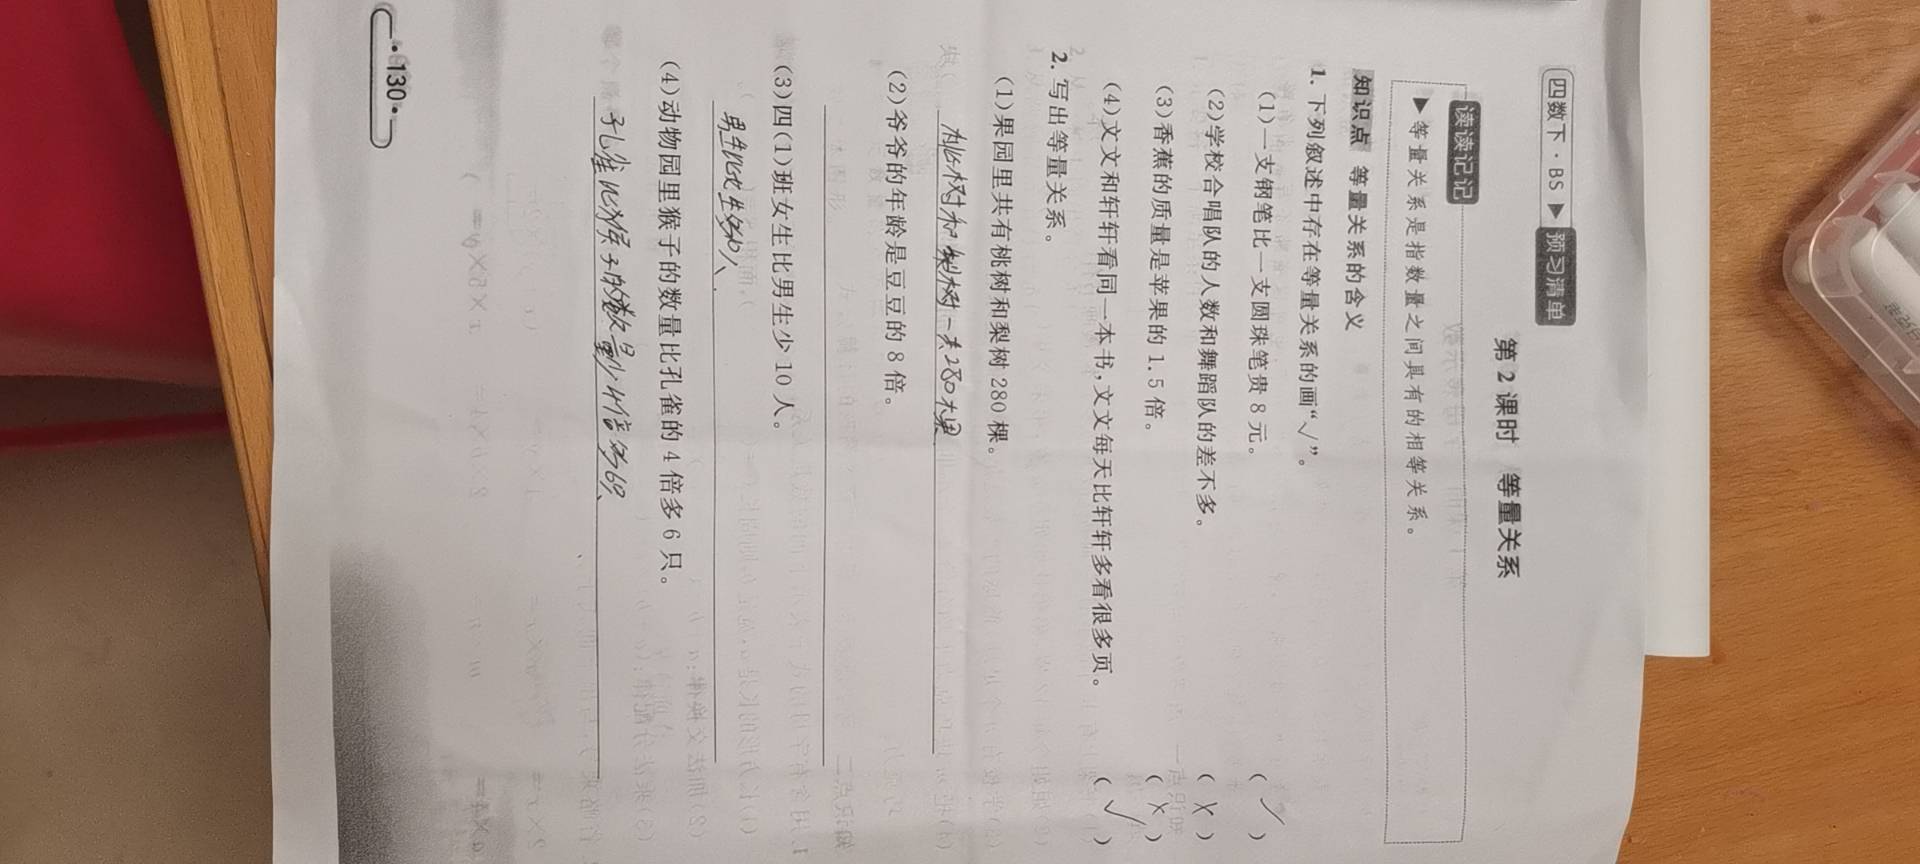 四数下·BS▶预习清单
第2课时 等量关系
读读记记
▶等量关系是指数量之间具有的相等关系。
知识点 等量关系的含义
1. 下列叙述中存在等量关系的画“√”。
(1)一支钢笔比一支圆珠笔贵8元。 (√)
(2)学校合唱队的人数和舞蹈队的差不多。 (X)
(3)香蕉的质量是苹果的1.5倍。 (X)
(4)文文和轩轩看同一本书,文文每天比轩轩多看很多页。 (√)
2. 写出等量关系。
(1)果园里共有桃树和梨树280棵。
桃树和梨树一共280棵
(2)爷爷的年龄是豆豆的8倍。
(3)四(1)班女生比男生少10人。
男生比女生多10人、
(4)动物园里猴子的数量比孔雀的4倍多6只。
孔雀比猴子的数量少4倍多6只、
·130·